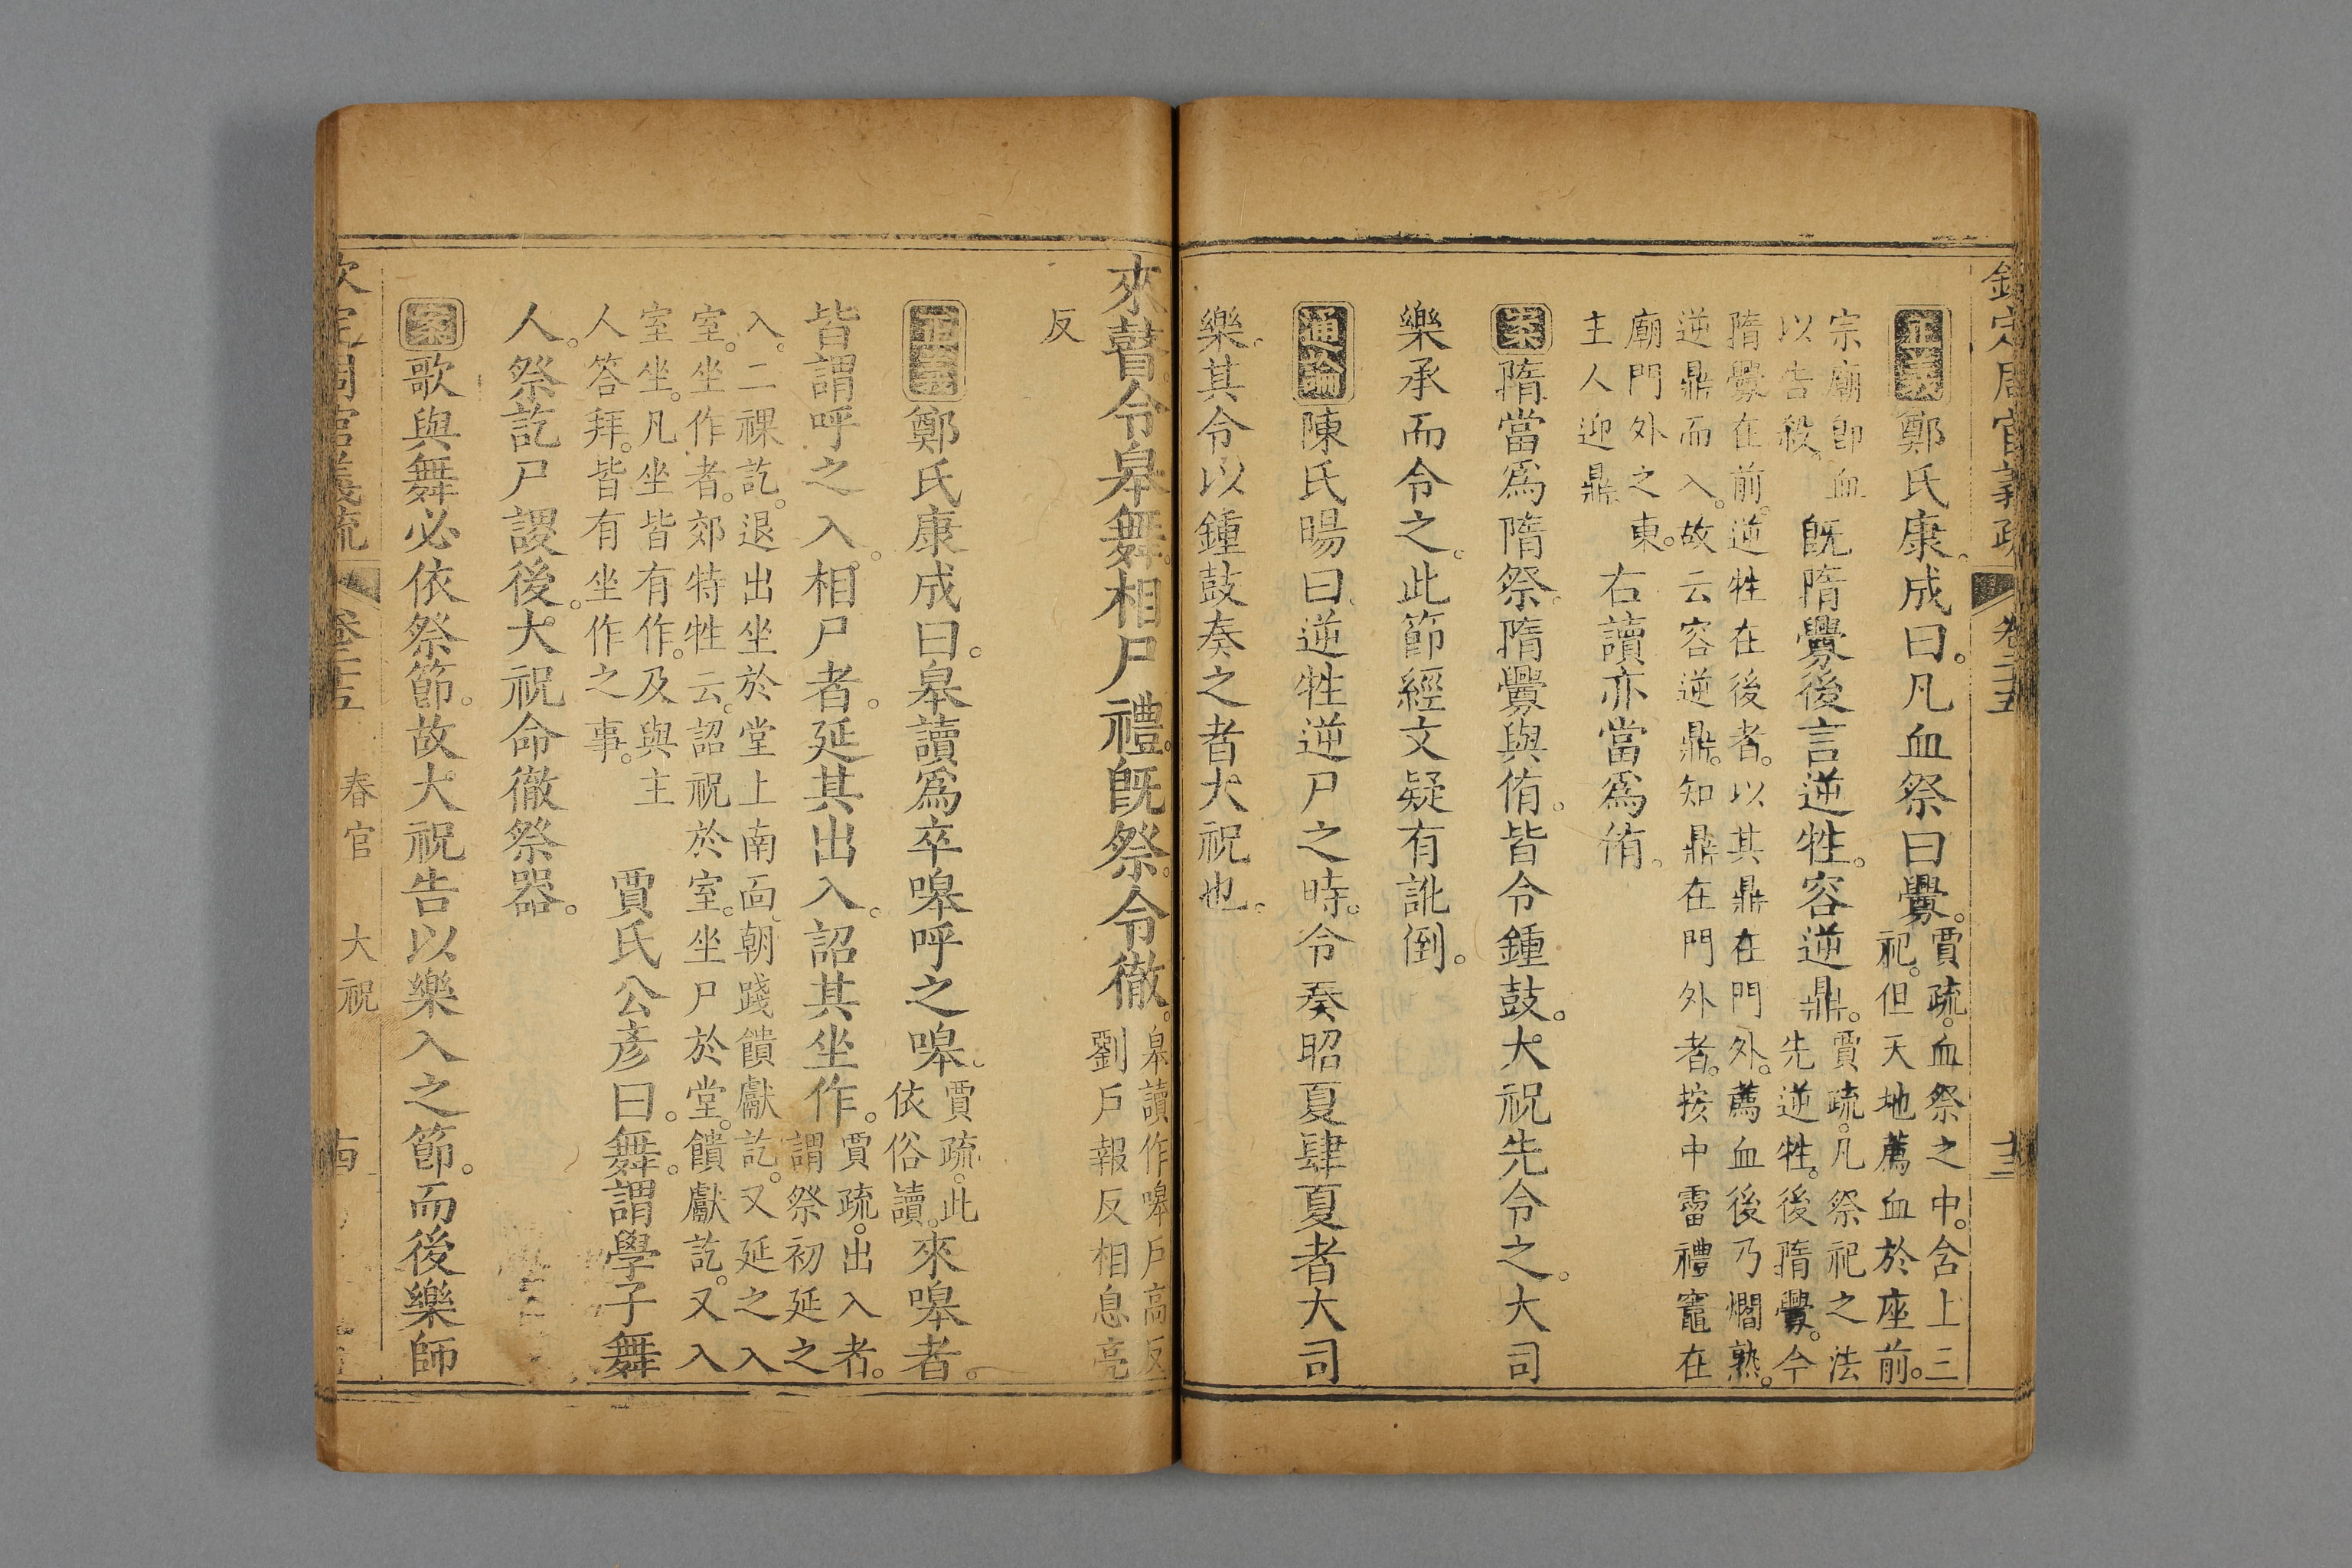 欽定周官義疏 卷二十五 十三
正義鄭氏康成曰。凡血祭曰釁。賈疏。血祭之中。含上三
祀。但天地薦血於座前。
宗廟卽血
以告殺。旣隋釁後言逆牲。容逆鼎。賈疏。凡祭祀之法
先逆牲。後隋釁。今
隋釁在前。逆牲在後者。以其鼎在門外。薦血後乃爓熟。
逆鼎而入。故云容逆鼎。知鼎在門外者。按中霤禮竈在
廟門外之東。
主人迎鼎右讀亦當爲侑。
案隋當爲隋祭。隋釁與侑。皆令鍾鼓。大祝先令之。大司
樂承而令之。此節經文疑有訛倒。
通論陳氏暘曰逆牲逆尸之時。令奏昭夏肆夏者大司
樂。其令以鍾鼓奏之者大祝也。
來瞽。令皋舞。相尸禮。旣祭。令徹。皋讀作嗥戶高反
劉戶報反相息亮
反
正義鄭氏康成曰。皋讀爲卒嗥呼之嗥。賈疏。此
依俗讀。來嗥者。
皆謂呼之入。相尸者。延其出入。詔其坐作。賈疏。出入者。
謂祭初延之
入。二祼訖。退出坐於堂上南面。朝踐饋獻訖。又延之入
室。坐作者。郊特牲云。詔祝於室。坐尸於堂。饋獻訖。又入
室坐。凡坐皆有作。及與主
人答拜。皆有坐作之事。賈氏公彥曰。舞。謂學子舞
人。祭訖尸謖後。大祝命徹祭器。
案歌與舞必依祭節。故大祝告以樂入之節。而後樂師
欽定周官義疏 卷二十五 春官 大祝